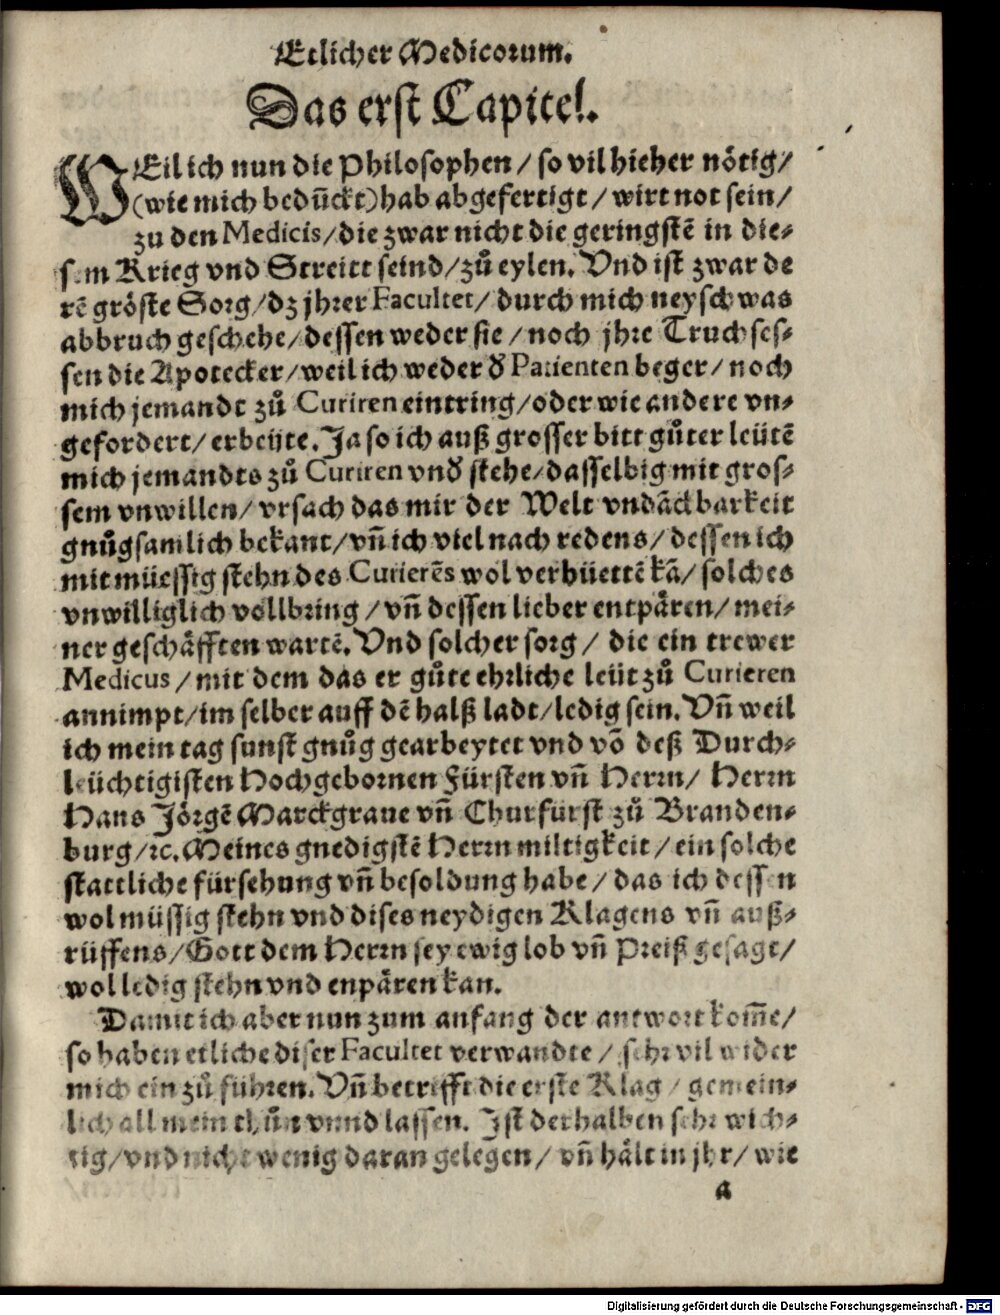 Etlicher Medicorum.
Das erst Capitel.
WEil ich nun die Philosophen / so vil hieher nötig /
(wie mich bedũckt) hab abgefertigt / wirt not sein /
zu den Medicis / die zwar nicht die geringstẽ in die⸗
sem Krieg vnd Streitt seind / zů eylen. Vnd ist zwar de
rẽ gröste Sorg / dz jhrer Facultet / durch mich neyschwas
abbruch geschehe / dessen weder sie / noch jhre Truchses⸗
sen die Apotecker / weil ich weder d̕ Patienten beger / noch
mich jemandt zů Curiren eintring / oder wie andere vn⸗
gefordert / erbeüte. Ja so ich auß grosser bitt gůter leütẽ
mich jemandts zů Curiren vnd̕ stehe / dasselbig mit gros⸗
sem vnwillen / vrsach das mir der Welt vndãckbarkeit
gnůgsamlich bekant / vñ ich viel nach redens / dessen ich
mit müessig stehn des Curierẽs wol verhüettẽ kã / solches
vnwilliglich vollbring / vñ dessen lieber entpären / mei⸗
ner geschäfften wartẽ. Vnd solcher sorg / die ein trewer
Medicus / mit dem das er gůte ehrliche leüt zů Curieren
annimpt / im selber auff dẽ halß ladt / ledig sein. Vñ weil
ich mein tag sunst gnůg gearbeytet vnd võ deß Durch⸗
leüchtigisten Hochgebornen Fürsten vñ Herrn / Herrn
Hans Jörgẽ Marckgraue vñ Churfürst zů Branden⸗
burg / ꝛc. Meines gnedigstẽ Herrn miltigkeit / ein solche
stattliche fürsehung vñ besoldung habe / das ich dessen
wol müssig stehn vnd dises neydigen Klagens vñ auß⸗
rüffens / Gott dem Herrn sey ewig lob vñ Preiß gesagt /
wol ledig stehn vnd enpären kan.
Damit ich aber nun zum anfang der antwort kom̃e /
so haben etliche diser Facultet verwandte / sehr vil wider
mich ein zů führen. Vñ betrifft die erste Klag / gemein⸗
lich all mein thůn vnnd lassen. Ist derhalben sehr wich⸗
tig / vnd nicht wenig daran gelegen / vñ hält in jhr / wie
a
Digitalisierung gefördert durch die Deutsche Forschungsgemeinschaft - DFG